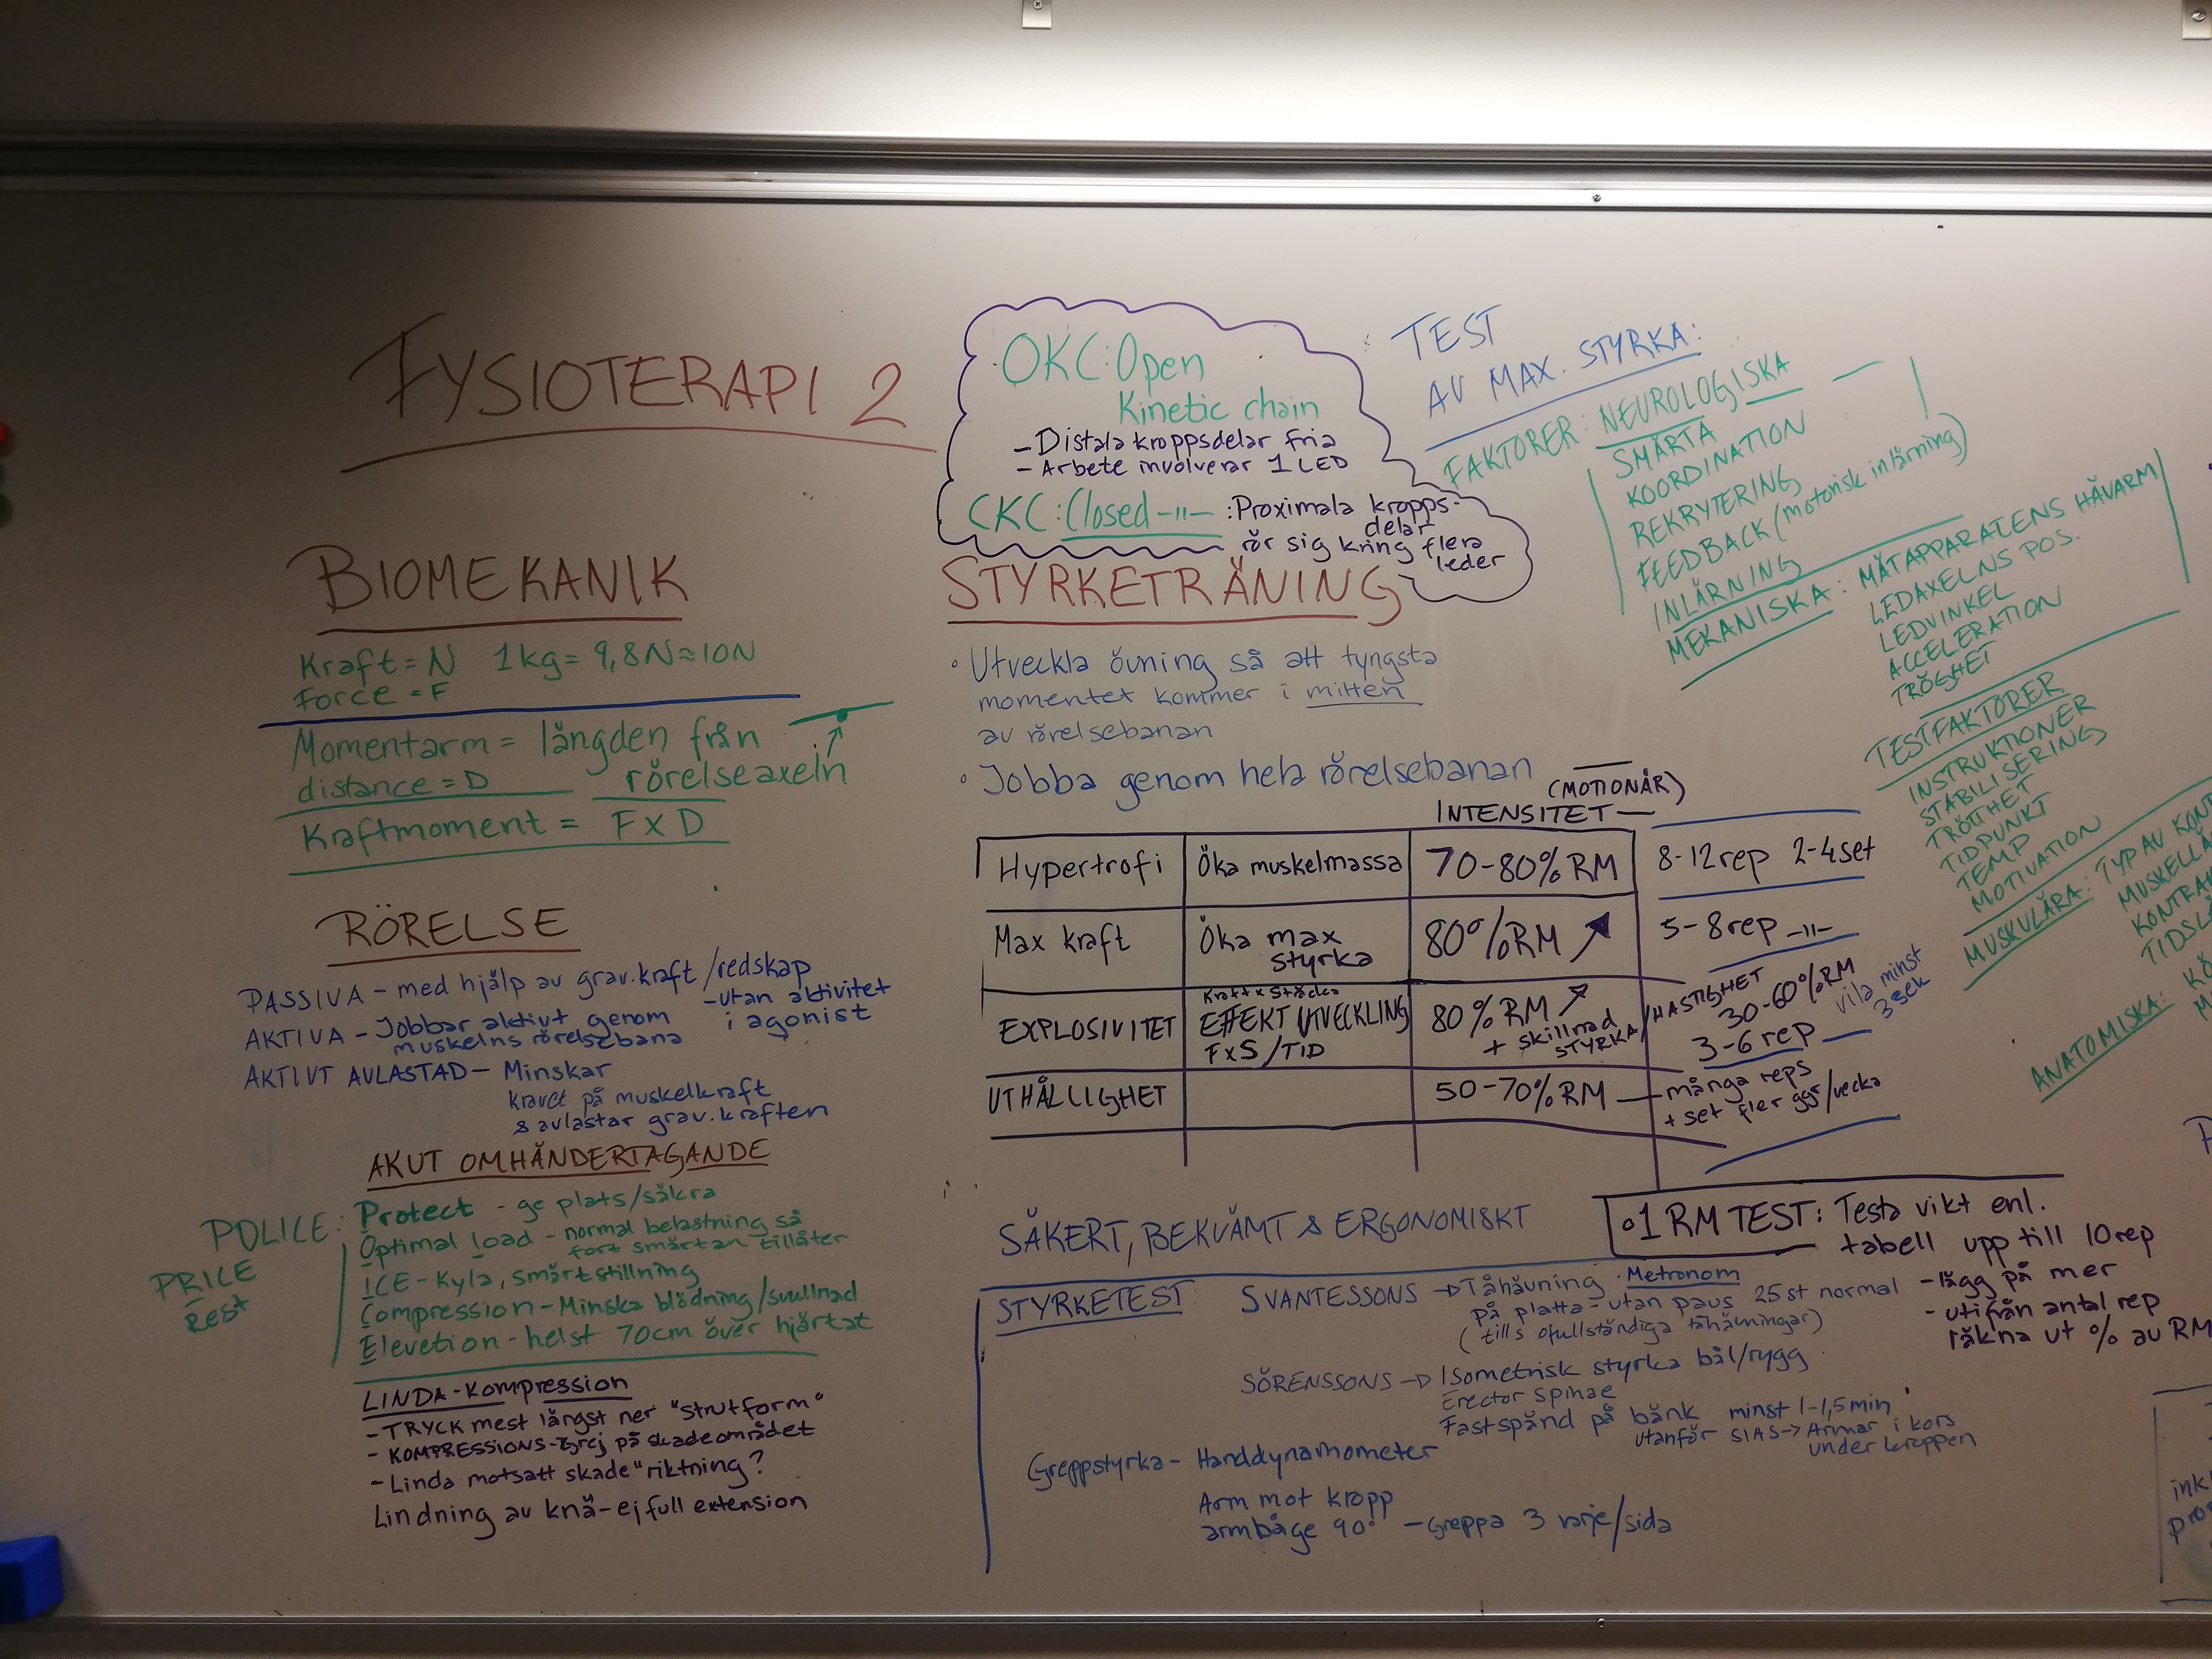 FYSIOTERAPI 2
BIOMEKANIK
Kraft = N 1kg = 9,8N ≈ 10N
Force = F
Momentarm = längden från
distance = D rörelseaxeln
Kraftmoment = F x D
RÖRELSE
PASSIVA - med hjälp av grav.kraft/redskap
- utan aktivitet
i agonist
AKTIVA - Jobbar aktivt genom
muskelns rörelsebana
AKTIVT AVLASTAD - Minskar
kravet på muskelkraft
& avlastar grav.kraften
AKUT OMHÄNDERTAGANDE
POLICE: Protect - ge plats/säkra
Optimal load - normal belastning så
fort smärtan tillåter
PRICE
Rest
ICE - Kyla, smärtstillning
Compression - Minska blödning/svullnad
Elevetion - helst 70cm över hjärtat
LINDA - Kompression
- TRYCK mest längst ner "strutform"
- KOMPRESSIONS-grej på skadeområdet
- Linda motsatt skade"riktning?
Lindning av knä - ej full extension
OKC: Open
Kinetic chain
- Distala kroppsdelar fria
- Arbete involverar 1 LED
CKC: Closed -"- : Proximala kropps-
delar
rör sig kring flera
leder
STYRKETRÄNING
• Utveckla övning så att tyngsta
momentet kommer i mitten
av rörelsebanan
• Jobba genom hela rörelsebanan
(MOTIONÄR)
INTENSITET —
Hypertrofi Öka muskelmassa 70-80% RM 8-12 rep 2-4 set
Max kraft Öka max styrka 80% RM ↗ 5-8 rep -"-
EXPLOSIVITET Kraft x Sträcka
EFFEKT UTVECKLING
F x S / TID
80% RM ↗
+ skillnad
STYRKA/HASTIGHET
30-60% RM
3-6 rep —
vila minst
3 sek
UTHÅLLIGHET 50-70% RM — många reps
+ set fler ggr/vecka
SÄKERT, BEKVÄMT & ERGONOMISKT
• 1 RM TEST: Testa vikt enl.
tabell upp till 10 rep
- lägg på mer
- utifrån antal rep
räkna ut % av RM
STYRKETEST
SVANTESSONS → Tåhävning • Metronom
på platta - utan paus 25 st normal
(tills ofullständiga tåhävningar)
SÖRENSSONS → Isometrisk styrka bål/rygg
Erector spinae
Fastspänd på bänk minst 1-1,5 min
utanför SIAS → Armar i kors
under kroppen
Greppstyrka - Handdynamometer
Arm mot kropp
armbåge 90° - Greppa 3 varje/sida
TEST
AV MAX. STYRKA:
FAKTORER: NEUROLOGISKA
SMÄRTA
KOORDINATION
REKRYTERING
FEEDBACK (motorisk inlärning)
INLÄRNING
MEKANISKA: MÄTAPPARATENS HÄVARM
LEDAXELNS POS.
LEDVINKEL
ACCELERATION
TRÖGHET
TESTFAKTORER
INSTRUKTIONER
STABILISERING
TRÖTTHET
TIDPUNKT
TEMP
MOTIVATION
MUSKULÄRA: TYP AV
ANATOMISKA: